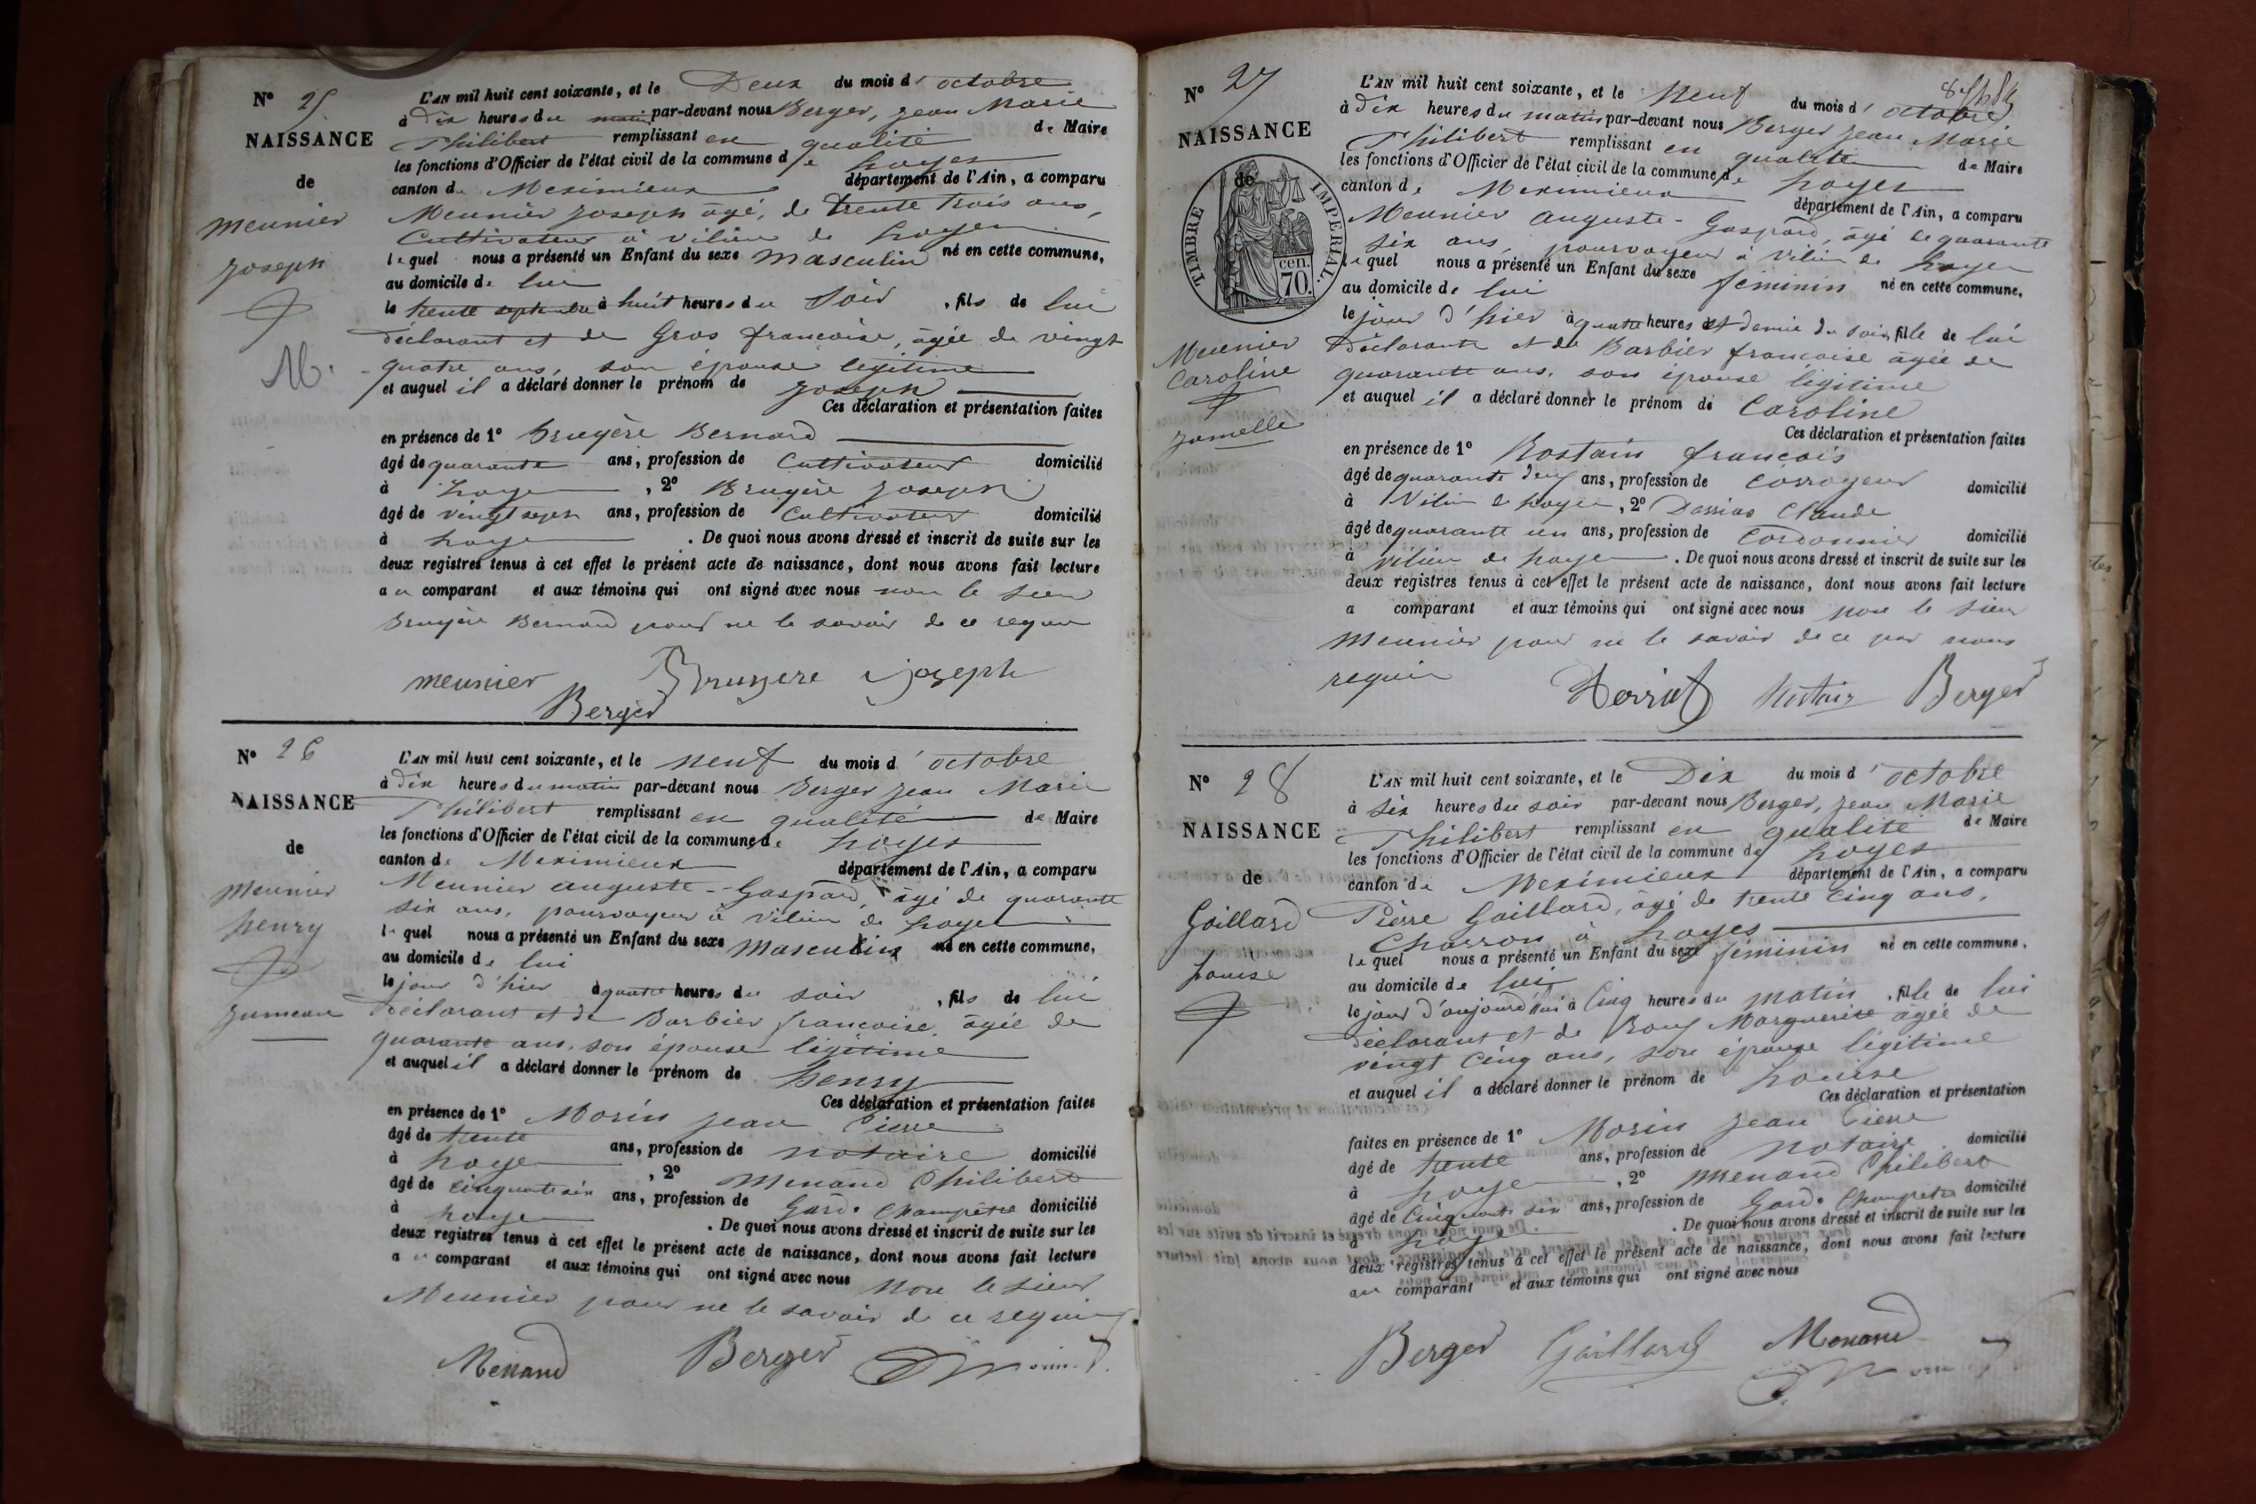 N° 25
NAISSANCE
de
Meunier
Joseph
M.
L'AN mil huit cent soixante, et le Deux du mois d'octobre
à Dix heures du matin par-devant nous Berger, Jean Marie
Philibert remplissant en qualité de Maire
les fonctions d'Officier de l'état civil de la commune de Loyes
canton de Meximieux département de l'Ain, a comparu
Meunier Joseph âgé, de trente trois ans,
Cultivateur à Vilieu de Loyes
lequel nous a présenté un Enfant du sexe masculin né en cette commune,
au domicile de lui
le trente septembre à huit heures du Soir, fils de lui
déclarant et de Gros françoise, âgée de vingt
quatre ans, son épouse légitime
et auquel il a déclaré donner le prénom de Joseph
Ces déclaration et présentation faites
en présence de 1° Bruyère Bernard
âgé de quarante ans, profession de Cultivateur domicilié
à Loyes, 2° Bruyère Joseph
âgé de vingt sept ans, profession de Cultivateur domicilié
à Loyes. De quoi nous avons dressé et inscrit de suite sur les
deux registres tenus à cet effet le présent acte de naissance, dont nous avons fait lecture
au comparant et aux témoins qui ont signé avec nous non le sieur
Bruyère Bernard pour ne le savoir de ce requis
meunier Bruyere Joseph
Berger
N° 26
NAISSANCE
de
Meunier
henry
Jumeau
L'AN mil huit cent soixante, et le neuf du mois d'octobre
à Dix heures du matin par-devant nous Berger Jean Marie
Philibert remplissant en qualité de Maire
les fonctions d'Officier de l'état civil de la commune de Loyes
canton de Meximieux département de l'Ain, a comparu
Meunier auguste-Gaspard, âgé de quarante
six ans, pourvoyeur à Vilieu de Loyes
lequel nous a présenté un Enfant du sexe Masculin né en cette commune,
au domicile de lui
le jour d'hier à quatre heures du soir, fils de lui
déclarant et de Barbier françoise, âgée de
quarante ans, son épouse légitime
et auquel il a déclaré donner le prénom de henry
Ces déclaration et présentation faites
en présence de 1° Morin Jean Pierre
âgé de trente ans, profession de notaire domicilié
à Loyes, 2° Menand Philibert
âgé de cinquante six ans, profession de Garde Champêtre domicilié
à Loyes. De quoi nous avons dressé et inscrit de suite sur les
deux registres tenus à cet effet le présent acte de naissance, dont nous avons fait lecture
au comparant et aux témoins qui ont signé avec nous Non le sieur
Meunier pour ne le savoir de ce requis
Menand Berger Morin
N° 27
NAISSANCE
de
TIMBRE IMPÉRIAL
cen.
70.
Meunier
Caroline
Jumelle
L'AN mil huit cent soixante, et le Neuf du mois d'octobre
à dix heures du matin par-devant nous Berger Jean Marie
Philibert remplissant en qualité de Maire
les fonctions d'Officier de l'état civil de la commune de Loyes
canton de Meximieux département de l'Ain, a comparu
Meunier auguste-Gaspard, âgé de quarante
six ans, pourvoyeur à Vilieu de Loyes
lequel nous a présenté un Enfant du sexe féminin né en cette commune,
au domicile de lui
le jour d'hier à quatre heures et demie du soir, fille de lui
déclarant et de Barbier françoise âgée de
quarante ans, son épouse légitime
et auquel il a déclaré donner le prénom de Caroline
Ces déclaration et présentation faites
en présence de 1° Rostain françois
âgé de quarante deux ans, profession de Corroyeur domicilié
à Vilieu de Loyes, 2° Claude
âgé de quarante un ans, profession de Cordonnier domicilié
à Vilieu de Loyes. De quoi nous avons dressé et inscrit de suite sur les
deux registres tenus à cet effet le présent acte de naissance, dont nous avons fait lecture
a comparant et aux témoins qui ont signé avec nous non le sieur
Meunier pour ne le savoir de ce par nous
requis
Berger
N° 28
NAISSANCE
de
Gaillard
Louise
L'AN mil huit cent soixante, et le Dix du mois d'octobre
à six heures du soir par-devant nous Berger, Jean Marie
Philibert remplissant en qualité de Maire
les fonctions d'Officier de l'état civil de la commune de Loyes
canton de Meximieux département de l'Ain, a comparu
Pierre Gaillard, âgé de trente cinq ans,
Charron à Loyes
lequel nous a présenté un Enfant du sexe féminin né en cette commune,
au domicile de lui
le jour d'aujourd'hui à Cinq heures du matin, fille de lui
déclarant et de Roux Marguerite âgée de
vingt cinq ans, son épouse légitime
et auquel il a déclaré donner le prénom de Louise
Ces déclaration et présentation
faites en présence de 1° Morin Jean Pierre
âgé de trente ans, profession de notaire domicilié
à Loyes, 2° Menand Philibert
âgé de Cinquante six ans, profession de Garde Champêtre domicilié
à Loyes. De quoi nous avons dressé et inscrit de suite sur les
deux registres tenus à cet effet le présent acte de naissance, dont nous avons fait lecture
au comparant et aux témoins qui ont signé avec nous
Berger Gaillard Menand
Morin